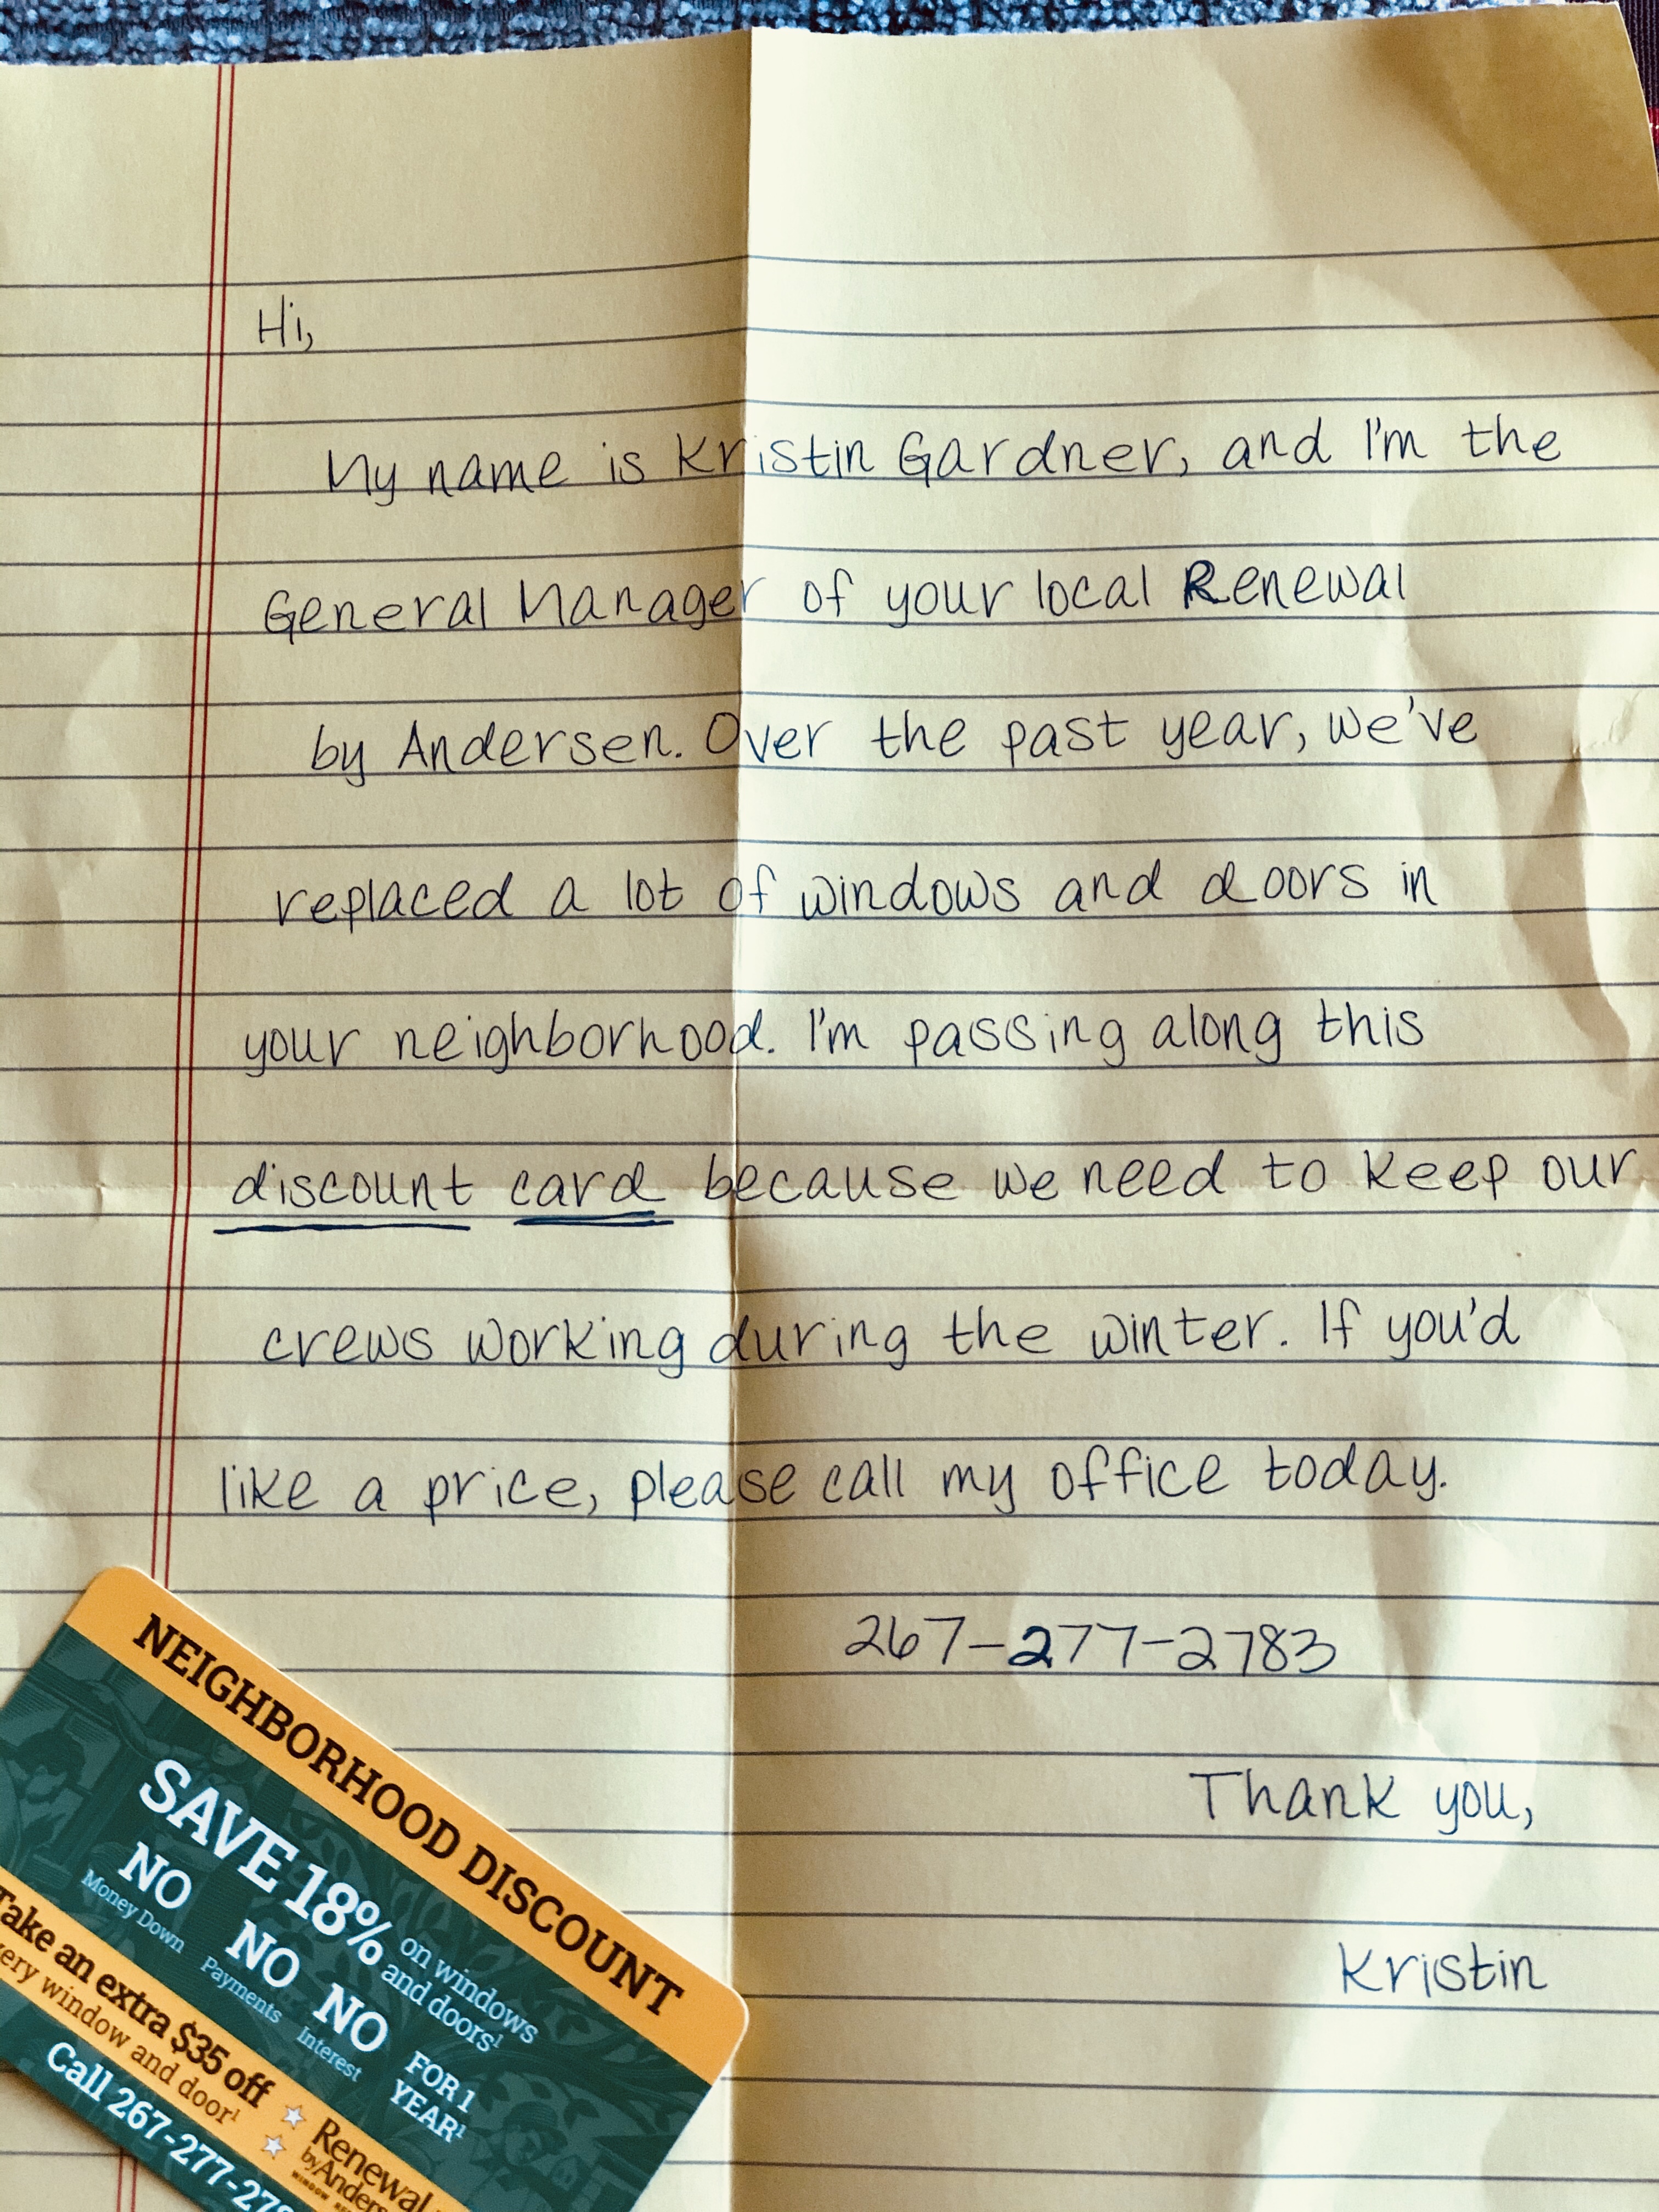 Hi,
My name is Kristin Gardner, and I'm the
General Manager of your local Renewal
by Andersen. Over the past year, we've
replaced a lot of windows and doors in
your neighborhood. I'm passing along this
discount card because we need to keep our
crews working during the winter. If you'd
like a price, please call my office today.
267-277-2783
Thank you,
Kristin
NEIGHBORHOOD DISCOUNT
SAVE 18% on windows
and doors¹
NO NO NO FOR 1
Money Down Payments Interest YEAR¹
Take an extra $35 off
window and door¹
Renewal
by
Call 267-277-278